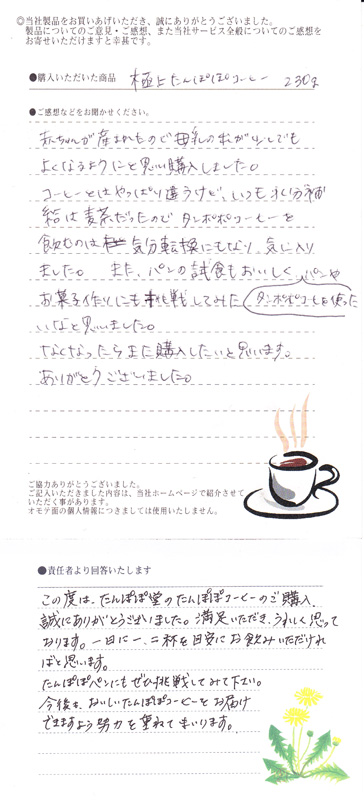 ◎当社製品をお買いあげいただき、誠にありがとうございました。
製品についてのご意見・ご感想、また当社サービス全般についてのご感想を
お寄せいただけますと幸甚です。
●購入いただいた商品 極上たんぽぽコーヒー 230g
●ご感想などをお聞かせください。
赤ちゃんが産まれたので母乳の出が少しでも
よくなるようにと思い購入しました。
コーヒーとはやっぱり違うけど、いつも水分補
給は麦茶だったのでタンポポコーヒーを
飲むのは気分転換にもなり、気に入り
ました。また、パンの試食もおいしく、パンや
お菓子作りにも挑戦してみた(タンポポコーヒーを使った)
いなと思いました。
なくなったらまた購入したいと思います。
ありがとうございました。
ご協力ありがとうございました。
ご記入いただきました内容は、当社ホームページで紹介させて
いただく事があります。
オモテ面の個人情報につきましては使用いたしません。
●責任者より回答いたします
この度は、たんぽぽ堂のたんぽぽコーヒーのご購入、
誠にありがとうございました。満足いただき、うれしく思って
おります。一日に一、二杯を目安にお飲みいただけれ
ばと思います。
たんぽぽパンにもぜひ挑戦してみて下さい。
今後も、おいしいたんぽぽコーヒーをお届け
できますよう努力を重ねてまいります。